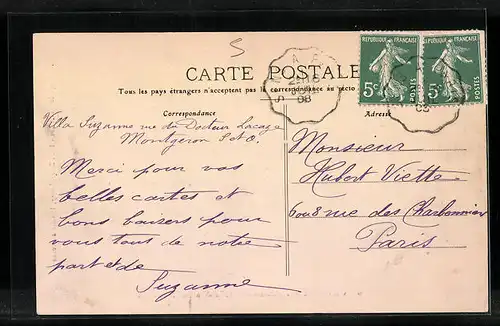 5
CARTE POSTALE
Tous les pays étrangers n'acceptent pas la correspondance au recto
Correspondance
Adresse
REPUBLIQUE FRANÇAISE
5c POSTES
REPUBLIQUE FRANÇAISE
5c POSTES
08
Villa Suzanne rue du Docteur Lacaze
Montgeron S. et O.
Merci pour vos
belles cartes et
bons baisers pour
vous tous de notre
part et de
Suzanne
Monsieur
Hubert Viette
6 ou 8 rue des Charbonniers
Paris